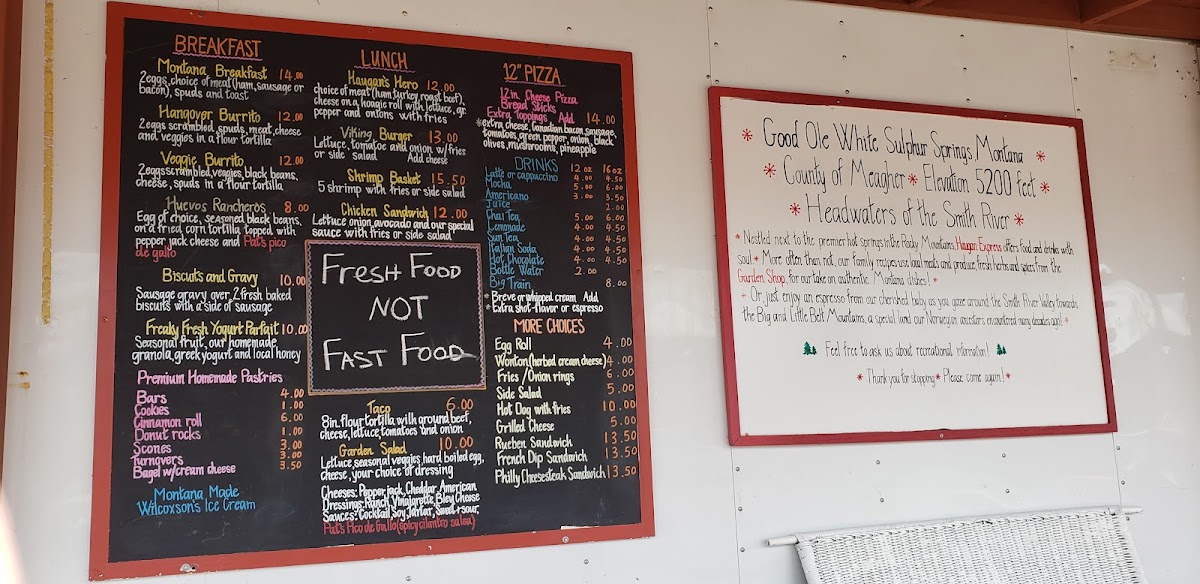 BREAKFAST
Montana Breakfast 14.00
2 eggs, choice of meat (ham, sausage or
bacon), spuds and toast
Hangover Burrito 12.00
2 eggs scrambled, spuds, meat, cheese
and veggies in a flour tortilla
Veggie Burrito 12.00
2 eggs scrambled, veggies, black beans,
cheese, spuds in a flour tortilla
Huevos Rancheros 8.00
Egg of choice, seasoned black beans,
on a fried, corn tortilla, topped with
pepper jack cheese and Pat's pico
de gallo
Biscuits and Gravy 10.00
Sausage gravy over 2 fresh baked
biscuits with a side of sausage
Freaky Fresh Yogurt Parfait 10.00
Seasonal fruit, our homemade
granola, greek yogurt and local honey
Premium Homemade Pastries
Bars 4.00
Cookies 1.00
Cinnamon roll 6.00
Donut rocks 1.00
Scones 3.00
Turnovers 3.00
Bagel w/cream cheese 3.50
Montana Made
Wilcoxson's Ice Cream
LUNCH
Haugan's Hero 12.00
choice of meat (ham, turkey, roast beef),
cheese on a hoagie roll with lettuce, gr.
pepper and onions with fries
Viking Burger 13.00
Lettuce, tomatoe and onion w/fries
or side salad Add cheese
Shrimp Basket 15.50
5 shrimp with fries or side salad
Chicken Sandwich 12.00
Lettuce onion, avocado and our special
sauce with fries or side salad
FRESH FOOD
NOT
FAST FOOD
Taco 6.00
8in. flour tortilla with ground beef,
cheese, lettuce, tomatoes and onion
Garden Salad 10.00
Lettuce, seasonal veggies, hard boiled egg,
cheese, your choice of dressing
Cheeses: Pepper jack, Cheddar, American
Dressings: Ranch, Vinaigrette, Bley Cheese
Sauces: Cocktail, Soy, Tartar, Sweet+sour,
Pat's Pico de Gallo (spicy cilantro salsa)
12" PIZZA
12 in. Cheese Pizza
Bread Sticks
Extra Toppings Add 14.00
*extra cheese, canadian bacon, sausage,
tomatoes, green pepper, onion, black
olives, mushrooms, pineapple
DRINKS 12 oz 16 oz
Latte or cappuccino 4.00 4.50
Mocha 5.00 6.00
Americano 3.00 3.50
Juice 2.00
Chai Tea 5.00 6.00
Lemonade 4.00 4.50
Sun Tea 4.00 4.50
Italian Soda 4.00 4.50
Hot Chocolate 4.00 4.50
Bottle Water 2.00
Big Train 8.00
* Breve or whipped cream Add
* Extra shot-flavor or espresso
MORE CHOICES
Egg Roll 4.00
Wonton (herbed cream cheese) 4.00
Fries / Onion rings 6.00
Side Salad 5.00
Hot Dog with fries 10.00
Grilled Cheese 5.00
Rueben Sandwich 13.50
French Dip Sandwich 13.50
Philly Cheesesteak Sandwich 13.50
* Good Ole White Sulphur Springs Montana *
* County of Meagher * Elevation 5200 feet *
* Headwaters of the Smith River *
* Nestled next to the premier hot springs in the Rocky Mountains, Haugan Express offers food and drinks with
soul. * More often than not, our family recipes use local meats and produce, fresh herbs and spices from the
Garden Shop, for our take on authentic Montana dishes! *
* Or, just enjoy an espresso from our cherished baby as you gaze around the Smith River Valley towards
the Big and Little Belt Mountains, a special land our Norwegian ancestors encountered many decades ago! *
Feel free to ask us about recreational information!
* Thank you for stopping * Please come again! *